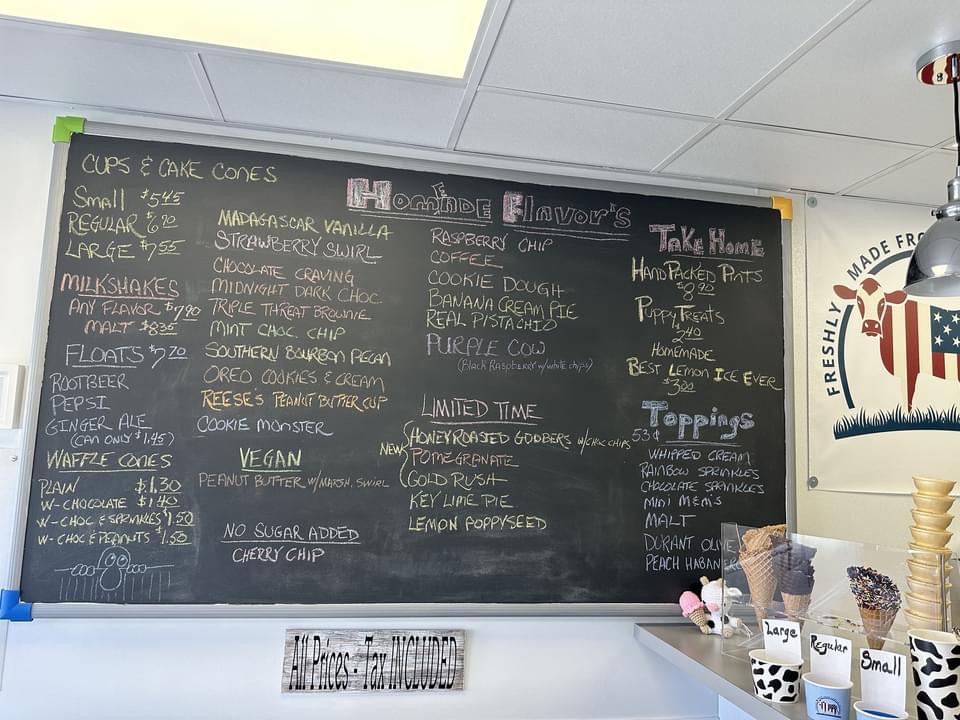 CUPS & CAKE CONES
Small $5.45
REGULAR $6.20
LARGE $7.55
MILKSHAKES
ANY FLAVOR $7.90
MALT $8.35
FLOATS $7.20
ROOTBEER
PEPSI
GINGER ALE
(CAN ONLY $1.45)
WAFFLE CONES
PLAIN $1.30
W-CHOCOLATE $1.40
W-CHOC & SPRINKLES $1.50
W-CHOC & PEANUTS $1.50
HOMEMADE FLAVOR'S
MADAGASCAR VANILLA
STRAWBERRY SWIRL
CHOCOLATE CRAVING
MIDNIGHT DARK CHOC.
TRIPLE THREAT BROWNIE
MINT CHOC. CHIP
SOUTHERN BOURBON PECAN
OREO COOKIES & CREAM
REESE'S PEANUT BUTTER CUP
COOKIE MONSTER
VEGAN
PEANUT BUTTER W/MARSH. SWIRL
NO SUGAR ADDED
CHERRY CHIP
RASPBERRY CHIP
COFFEE
COOKIE DOUGH
BANANA CREAM PIE
REAL PISTACHIO
PURPLE COW
(Black Raspberry w/white chips)
LIMITED TIME
NEW
HONEY ROASTED GOOBERS W/CHOC CHIPS
POMEGRANATE
GOLD RUSH
KEY LIME PIE
LEMON POPPYSEED
Take Home
HAND PACKED PINTS
$8.90
PUPPY TREATS
$2.40
HOMEMADE
BEST LEMON ICE EVER
$3.00
Toppings
53¢
WHIPPED CREAM
RAINBOW SPRINKLES
CHOCOLATE SPRINKLES
Mini M&M's
MALT
DURANT OLIVE
PEACH HABANERO
All Prices - Tax INCLUDED
FRESHLY MADE FRO
Large
Regular
Small